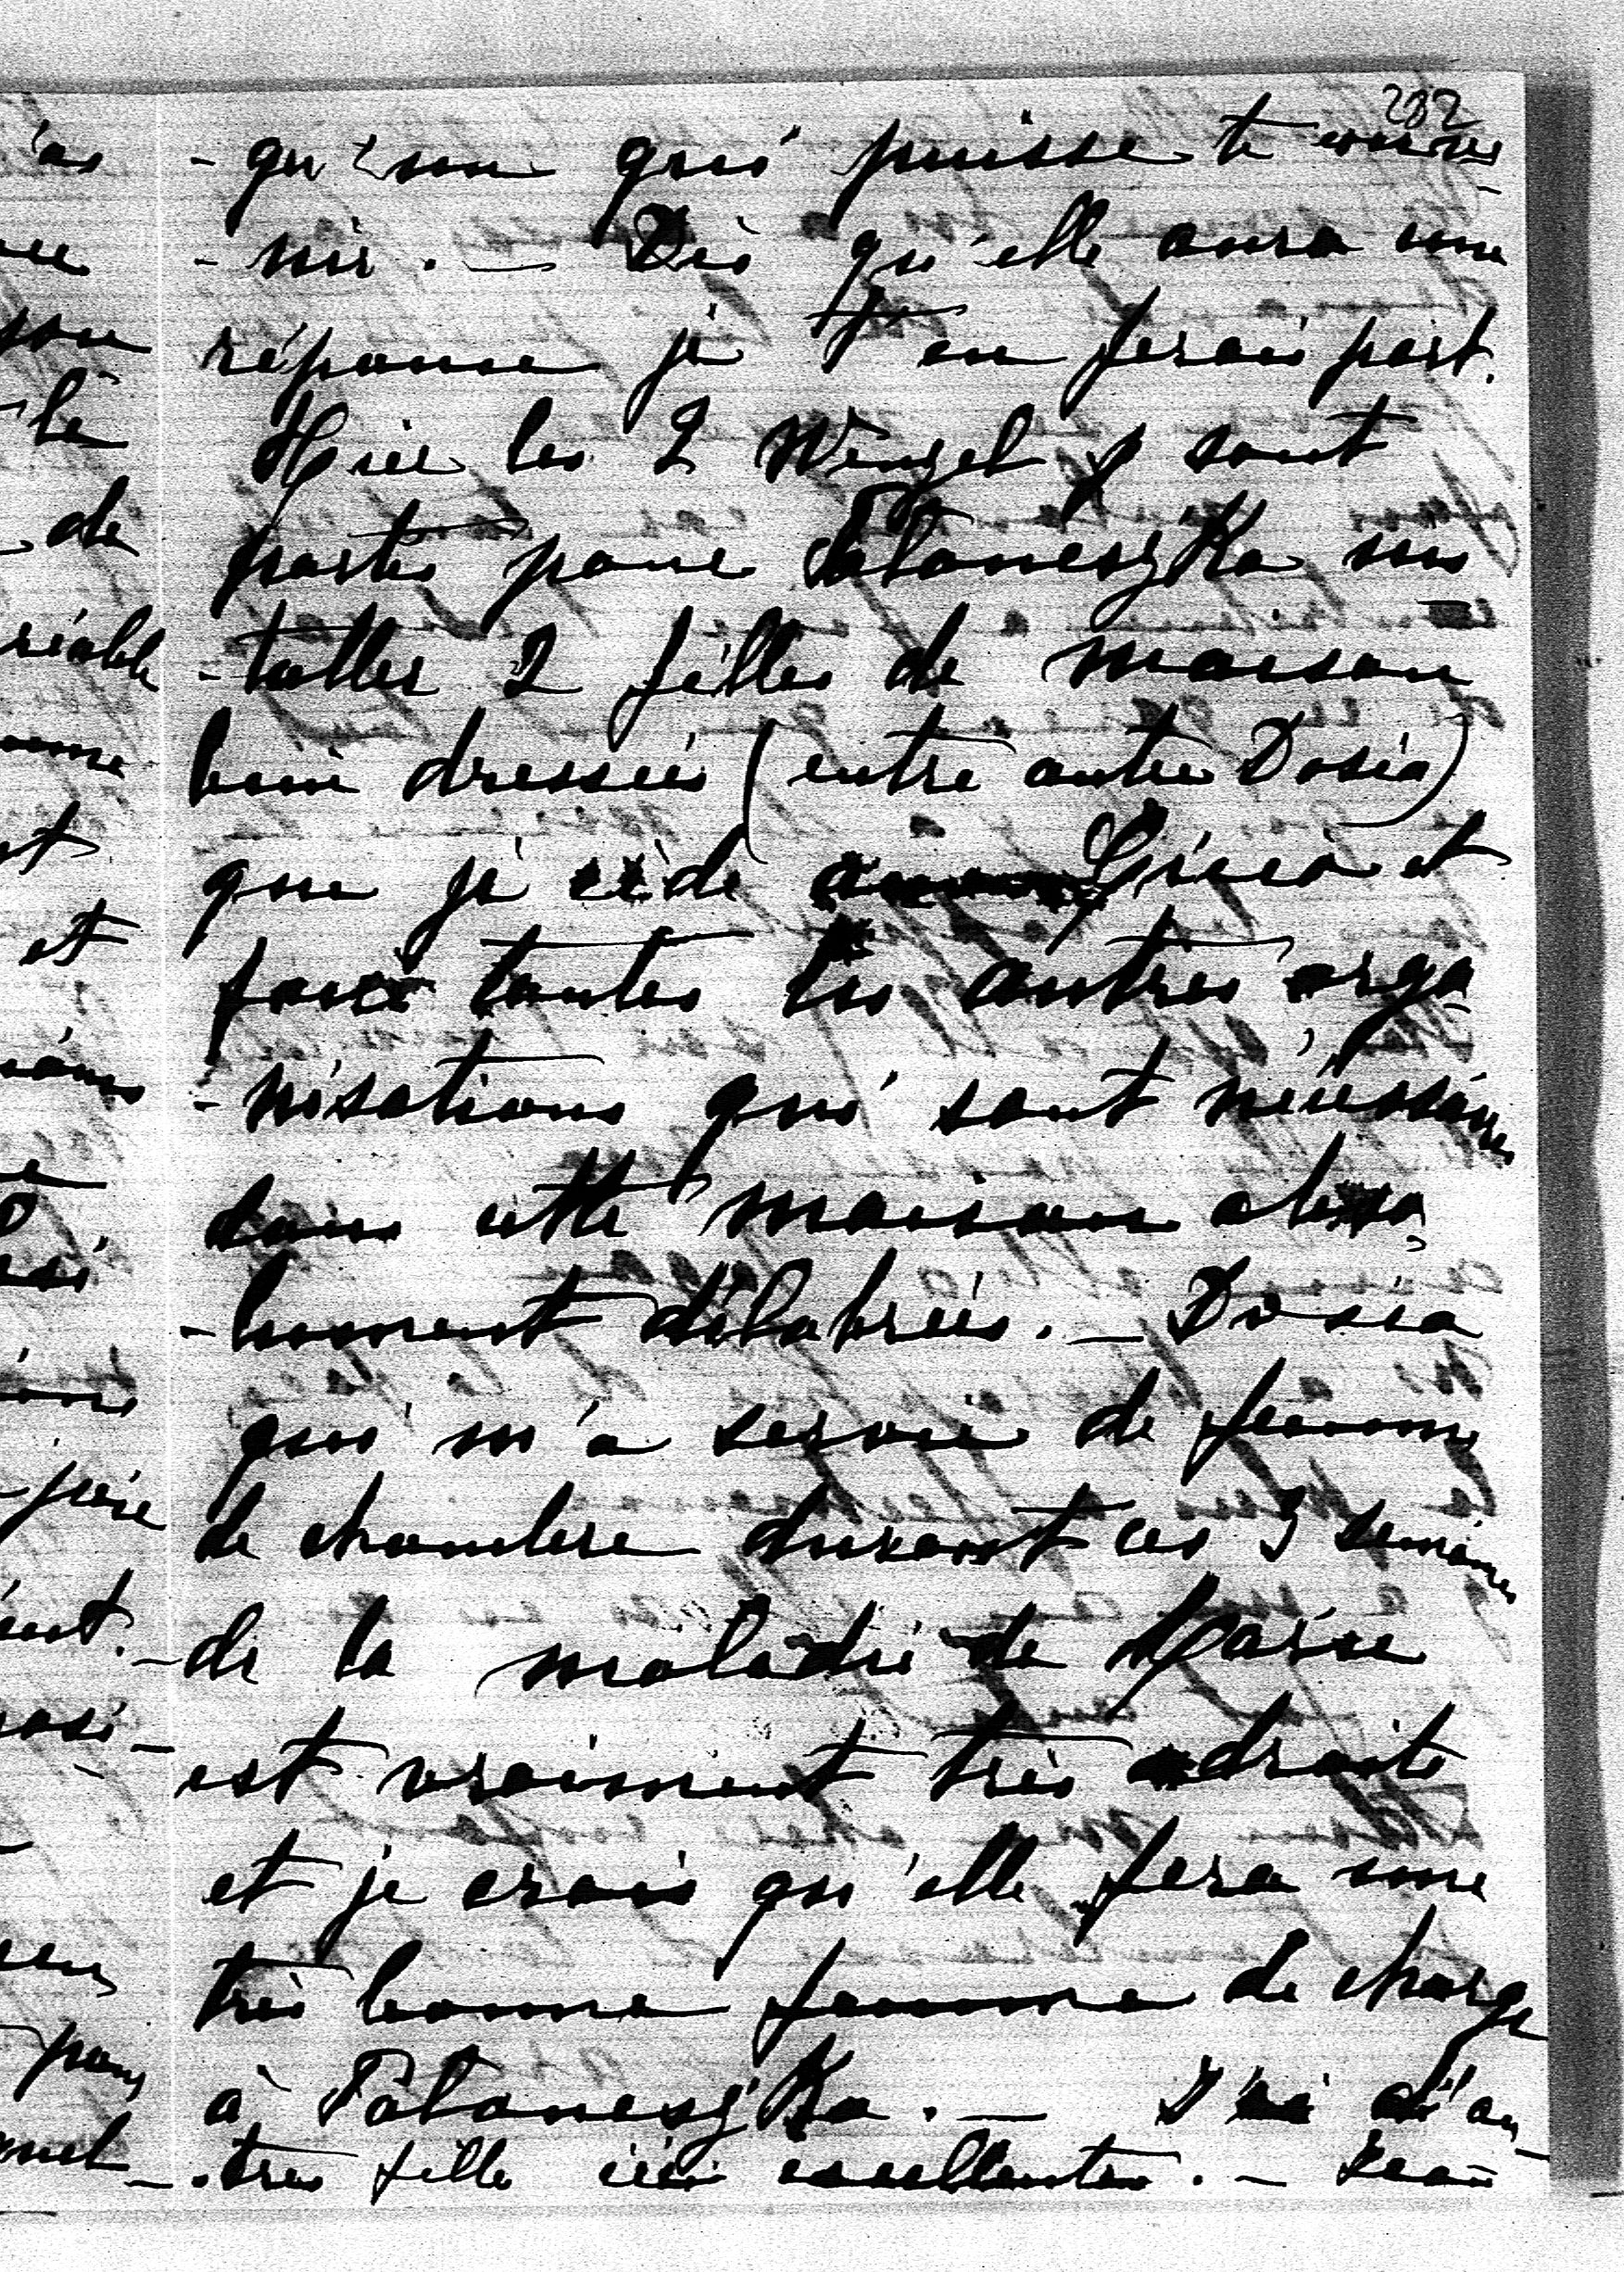 232
-qu'un qui puisse te conve-
-nir. — Dès qu'elle aura une
réponse je t'en ferai part.
Hier les 2 Wenzel y sont
partis pour Potoneszka ins
-taller 2 filles de maison
bien dressées (entre autre Dosia)
que je cède à Gisia et
faire toutes les autres orga
-nisations qui sont nécessaires
dans cette maison abso
-lument délabrée. — Dosia
qui m'a servie de femme
de chambre durant ces 3 semaines
de la maladie de Marie
est vraiment très adroite
et je crois qu'elle fera une
très bonne femme de charge
à Potoneszka. — J'ai d'au-
-tres filles ici excellentes. —